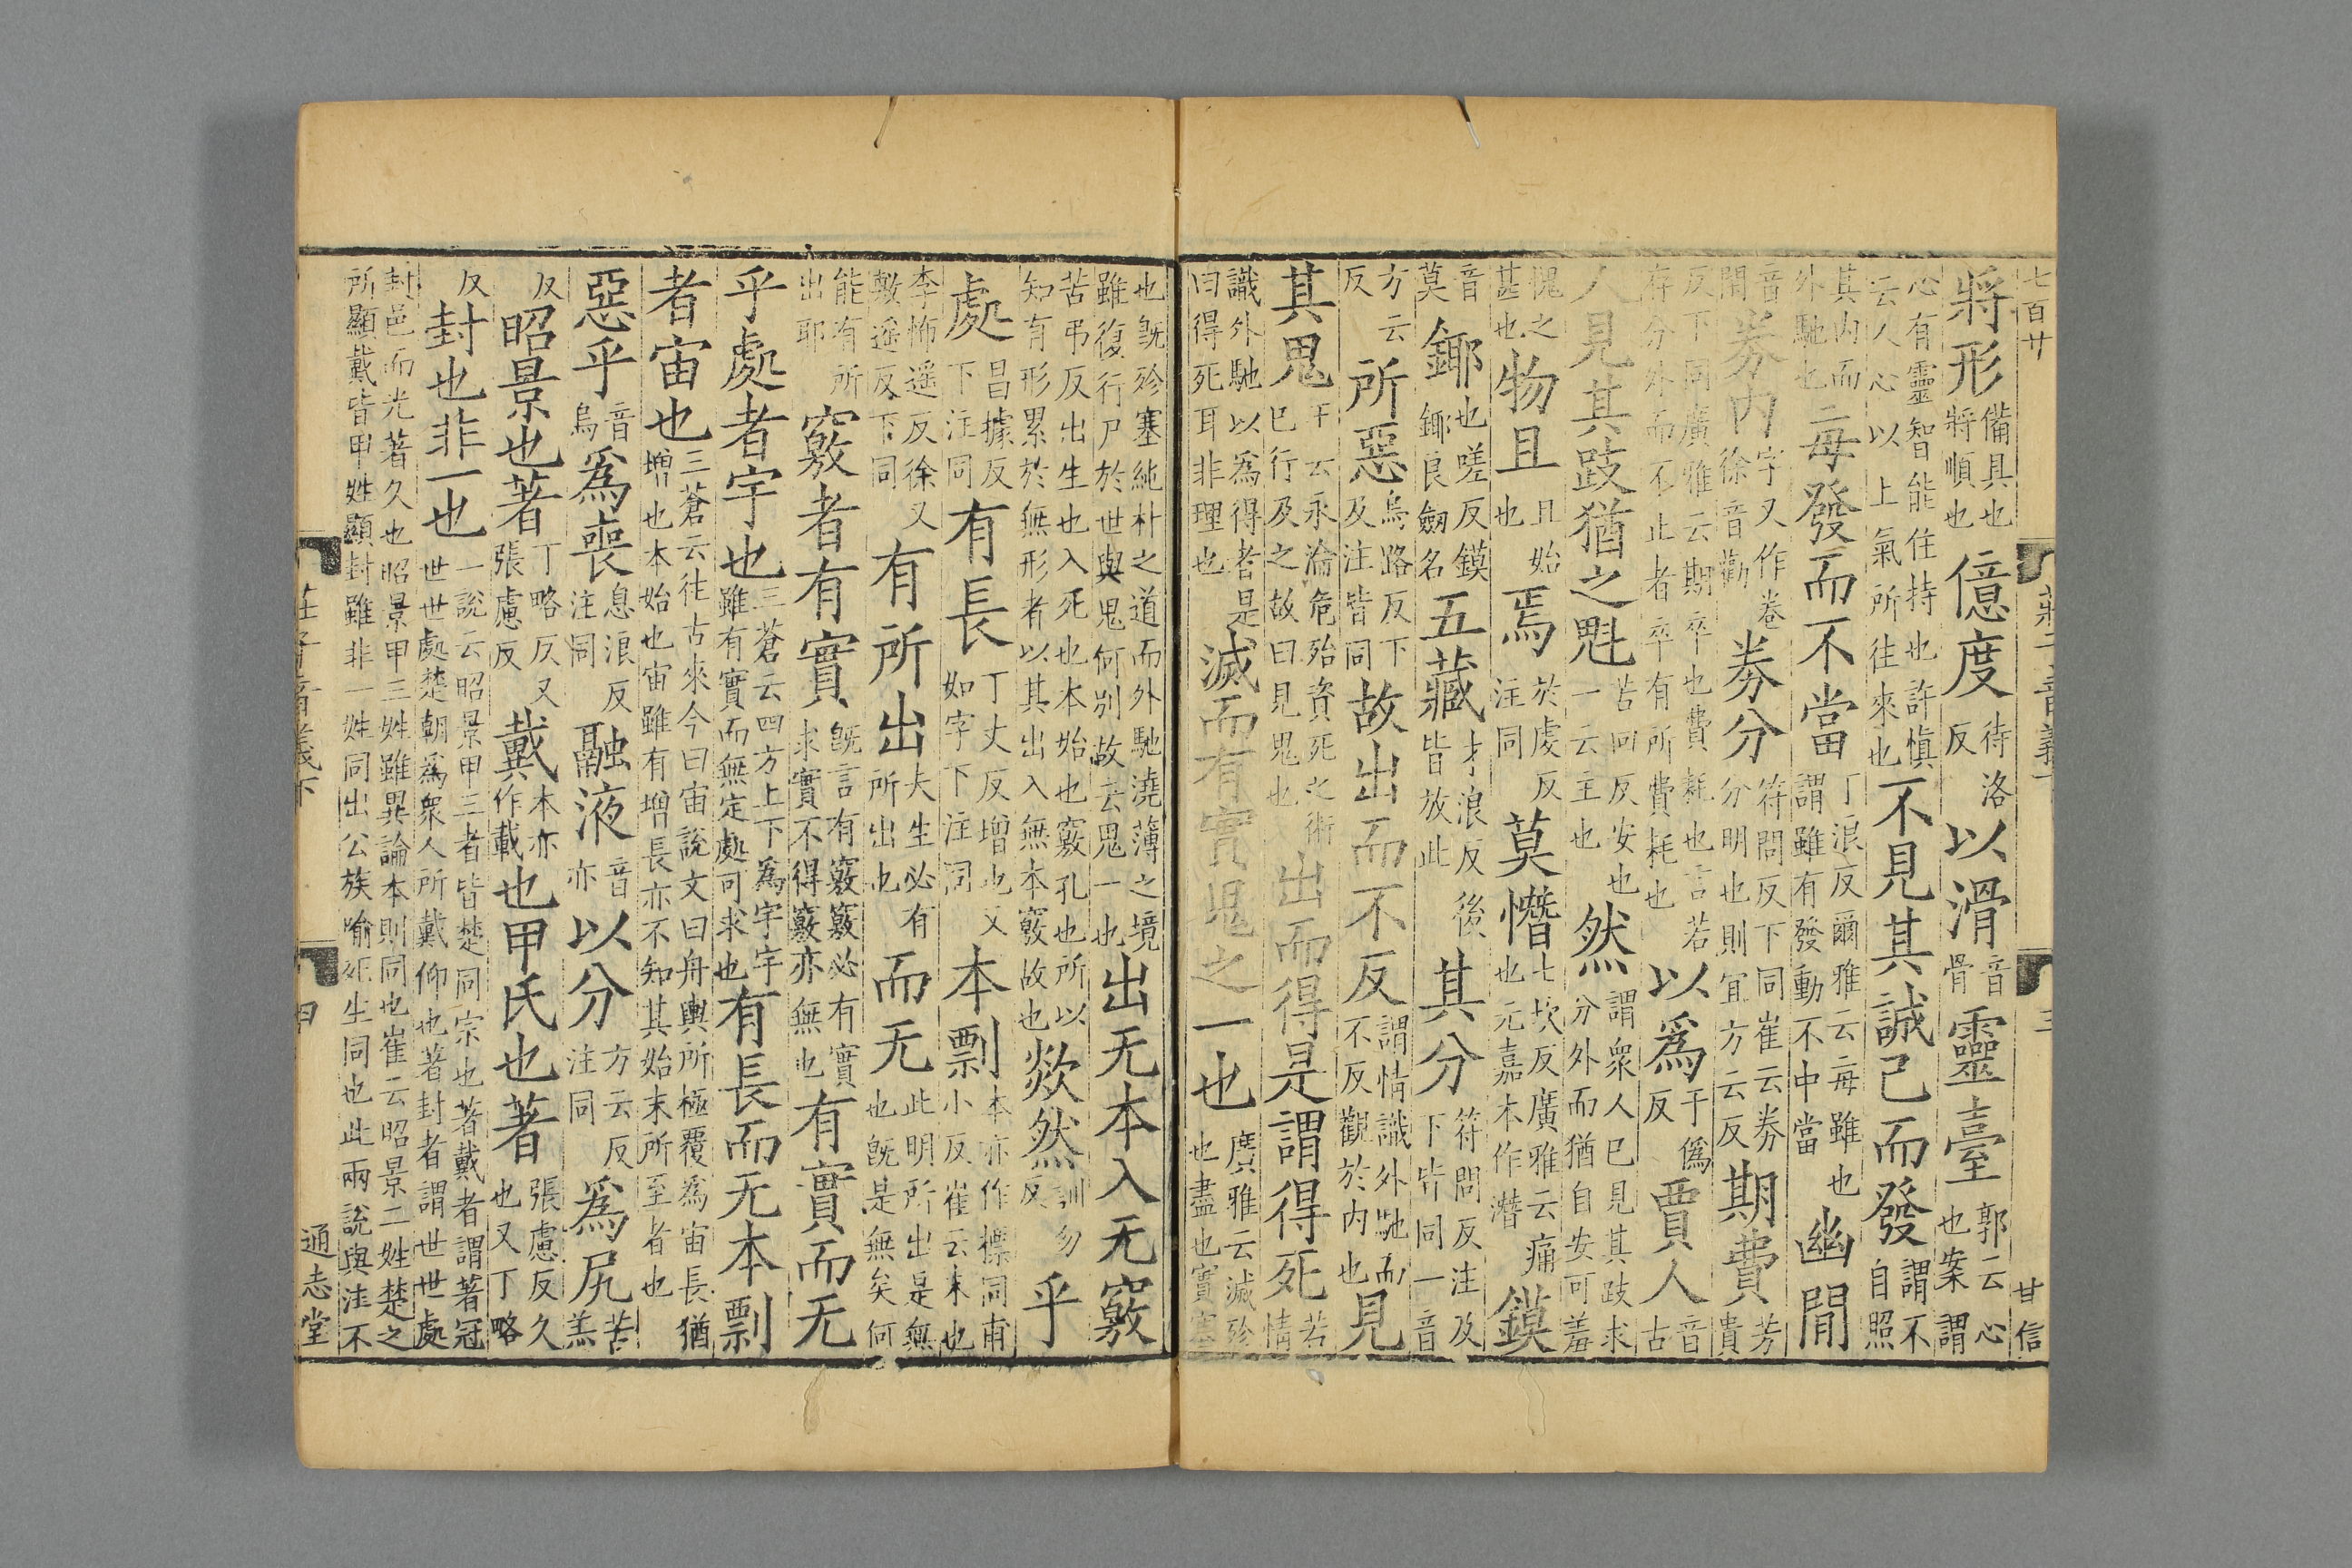 七百廿 莊子音義下 三 甘信
將形備具也將順也億度待洛反以滑音骨靈臺郭云心也案謂
心有靈智能住持也許慎云人心以上氣所往來也不見其誠己而發謂不自照
其內而外馳也二每發而不當丁浪反爾雅云每雖也謂雖有發動不中當幽閒
音閒券內字又作卷徐音勸券分符問反下同崔云券分明也則宜方云反期費芳貴
反下同廣雅云期卒也費耗也言若存分外而不止者卒有所費耗也以為于僞反賈人音古
人見其跂猶之魁苦回反安也一云主也然謂衆人已見其跂求分外而猶自安可羞
愧之甚也物且且始也焉於虔反注同莫憯七坎反廣雅云痛也元嘉本作潛鏌
音莫鎁也嗟反鏌鎁良劔名五藏才浪反後皆放此其分符問反注及下皆同一音
方云反所惡烏路反下及注皆同故出而不反謂情識外馳而不反觀於內也見
其鬼王云永淪危殆資死之術已行及之故曰見鬼也出而得是謂得死若情
識外馳以爲得者是曰得死耳非理也滅而有實鬼之一也廣雅云滅殄也盡也實塞
也旣殄塞純朴之道而外馳澆薄之境雖復行尸於世與鬼何別故云鬼一也出无本入无竅
苦弔反出生也入死也本始也竅孔也所以知有形累於無形者以其出入無本竅故也欻然訓勿反乎
處昌據反下注同有長丁丈反增也又如字下注同本剽本亦作摽同甫小反崔云末也
李怖遥反徐又敷遥反下同有所出夫生必有所出也而无此明所出是無也旣是無矣何
能有所出耶竅者有實旣言有竅竅必有實求實不得竅亦無也有實而无
乎處者宇也三蒼云四方上下爲宇宇雖有實而無定處可求也有長而无本剽
者宙也三蒼云往古來今曰宙說文曰舟輿所極覆爲宙長猶增也本始也宙雖有增長亦不知其始末所至者也
惡乎音烏爲喪息浪反注同融液音亦以分方云反注同爲尻苦羔
反昭景也著丁略反又張慮反戴本亦作載也甲氏也著張慮反久也又丁略
反封也非一也一說云昭景甲三者皆楚同宗也著戴者謂著冠世世處楚朝爲衆人所戴仰也著封者謂世世處
封邑而光著久也昭景甲三姓雖異論本則同也崔云昭景二姓楚之所顯戴皆甲姓顯封雖非一姓同出公族喻死生同也此兩說與注不
莊子音義下 通志堂